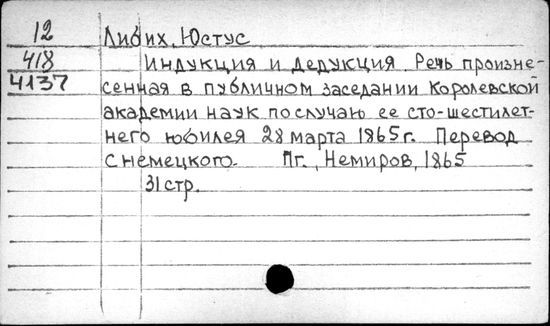 12 Либих, Юстус
418 Индукция и дедукция. Речь произне-
4137 сенная в публичном заседании Королевской
академии наук по случаю ее сто-шестилет-
него юбилея 28 марта 1865 г. Перевод
с немецкого. Пг., Немиров, 1865
31 стр.